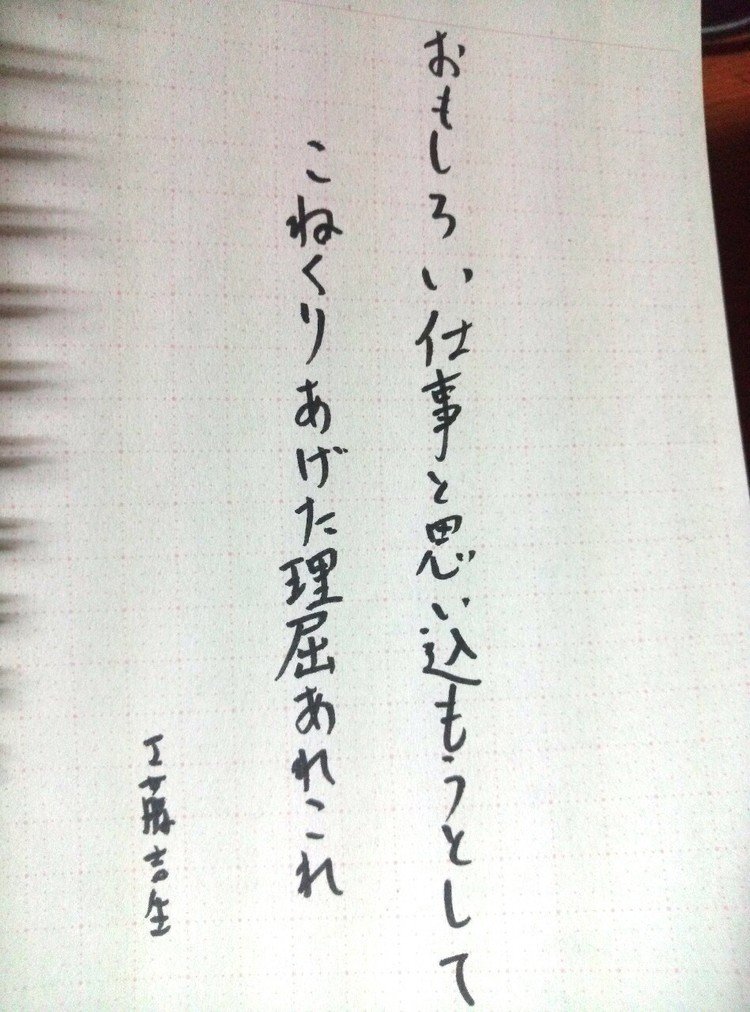 おもしろい仕事と思い込もうとして
こねくりあげた理屈あれこれ
工藤吉生